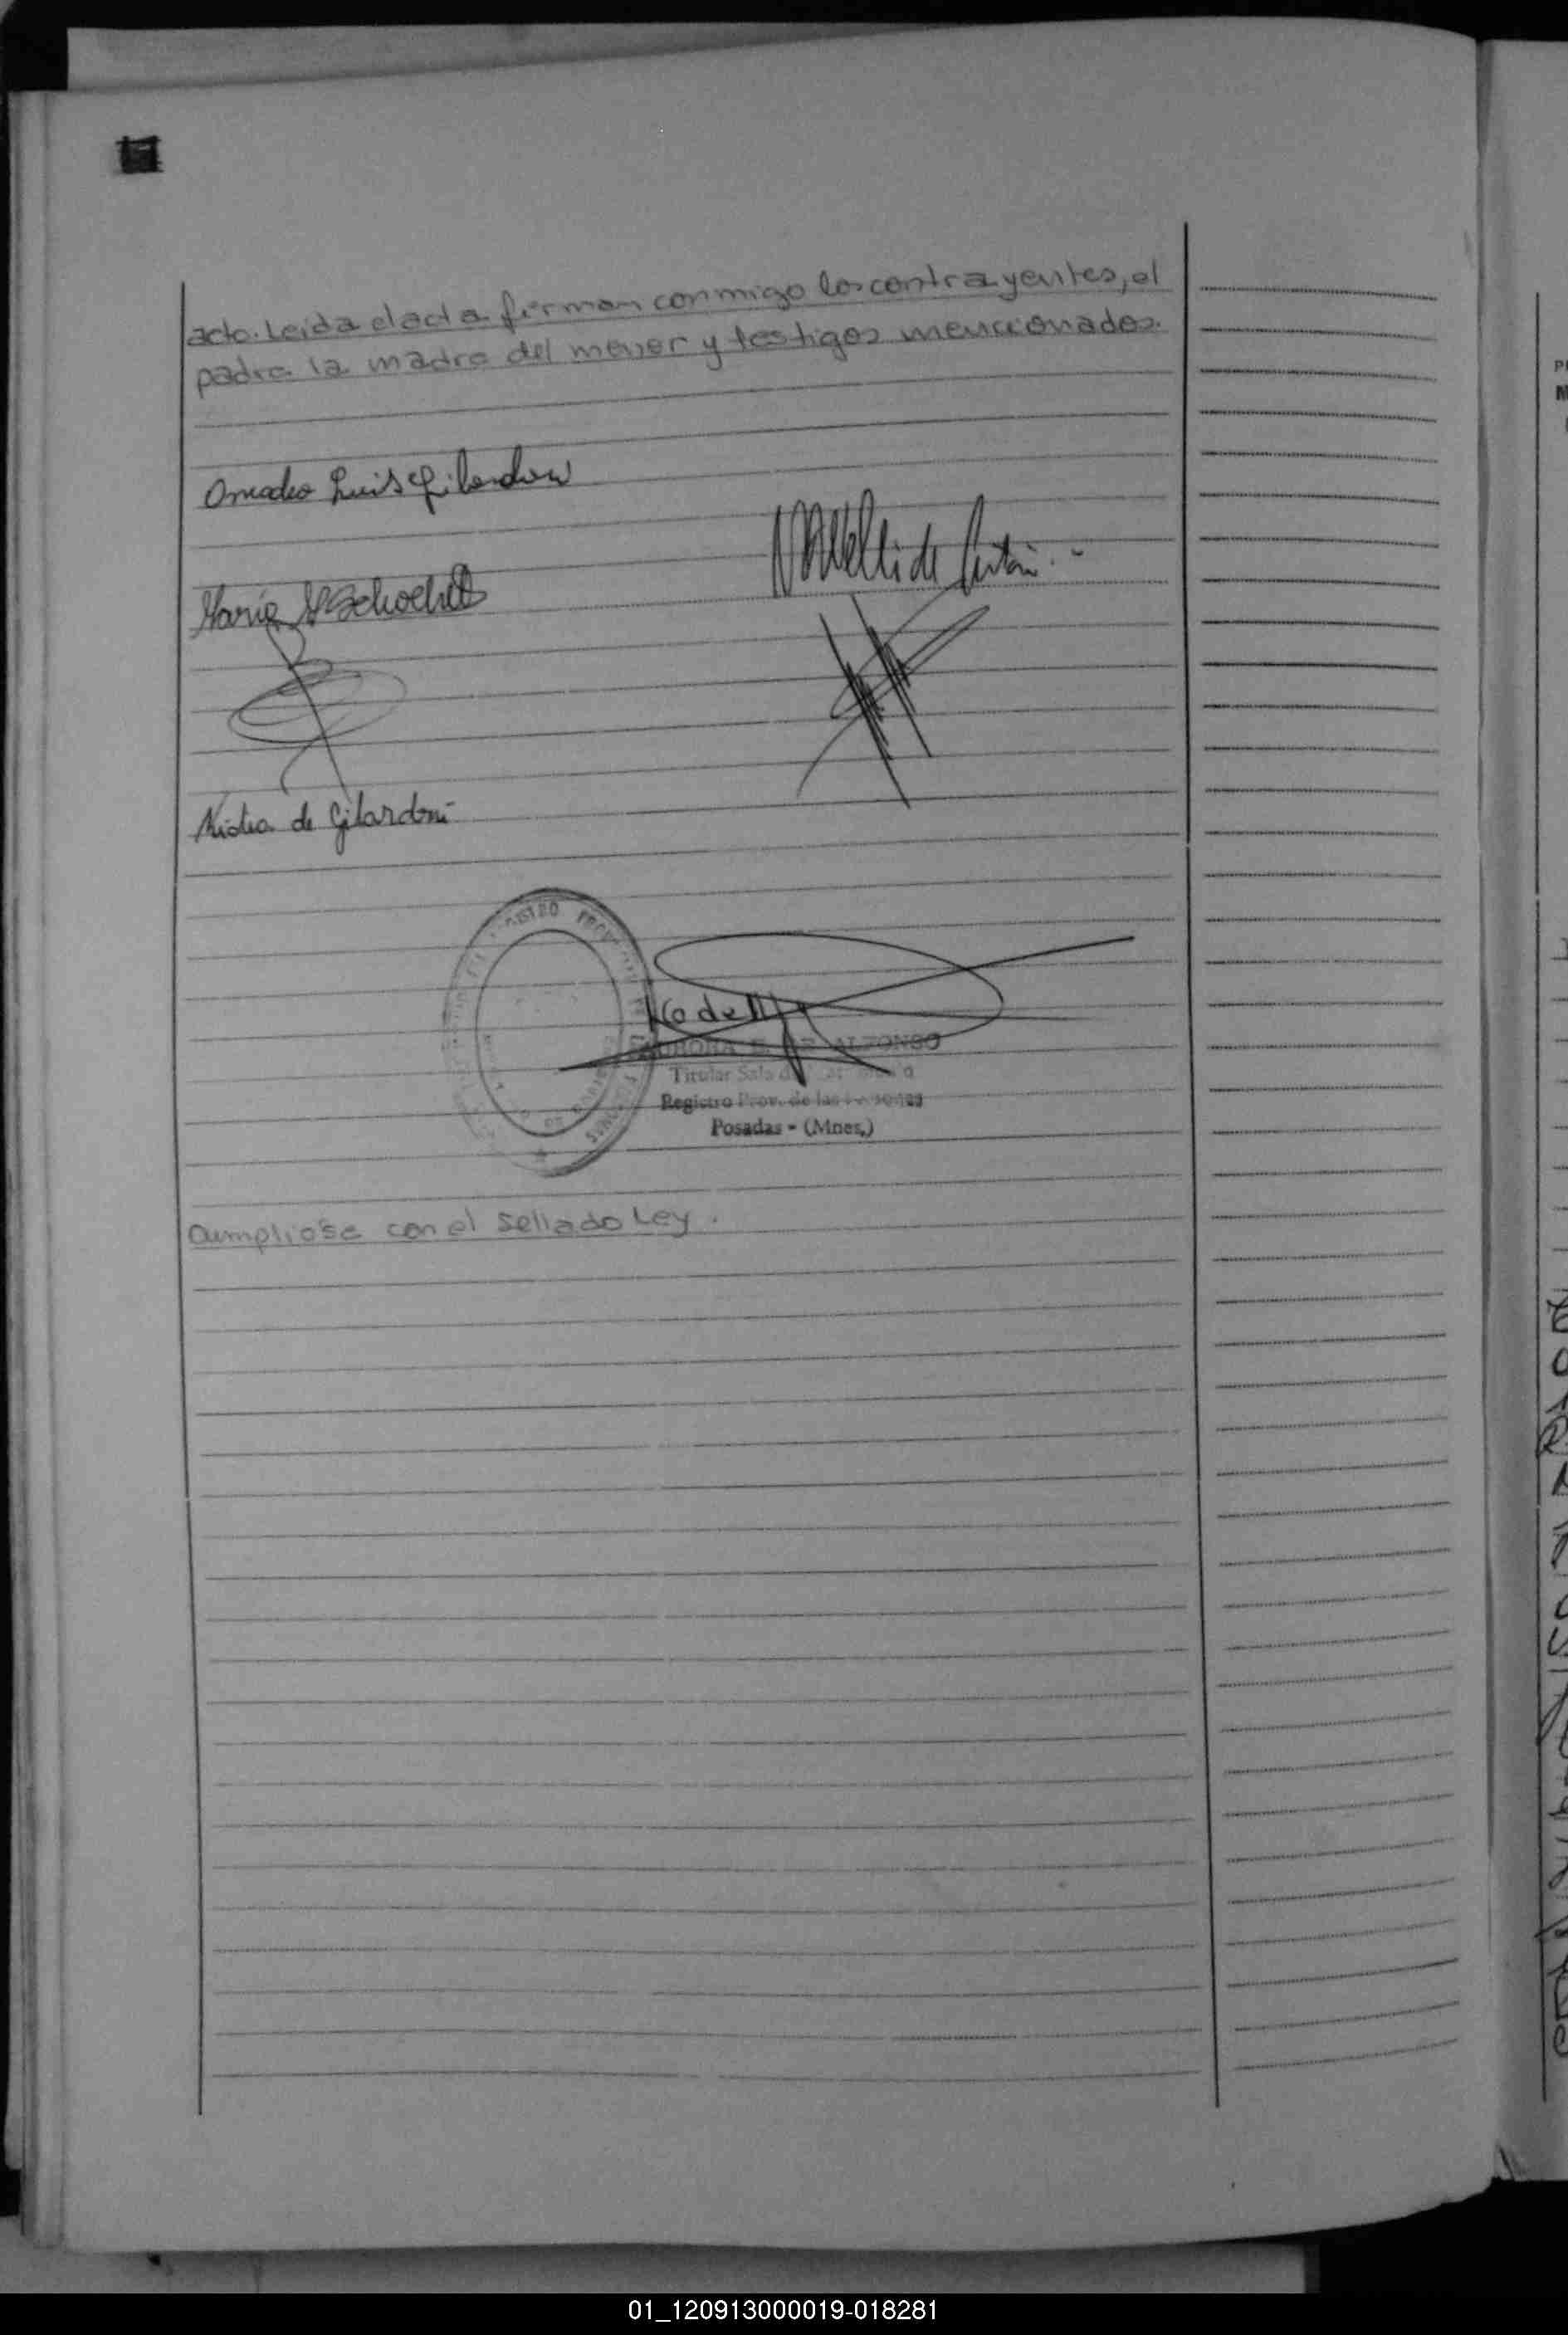 acto. Leida el acta firman conmigo los contrayentes, el
padre la madre del menor y testigos mencionados.
Amadeo Luis Gilardoni
de
María Schochet
Nidia de Gilardoni
REGISTRO
AURORA E. DE ALFONSO
Titular Sala
Registro Prov. de las Personas
Posadas - (Mnes.)
Cumpliose con el sellado Ley.
01_120913000019-018281